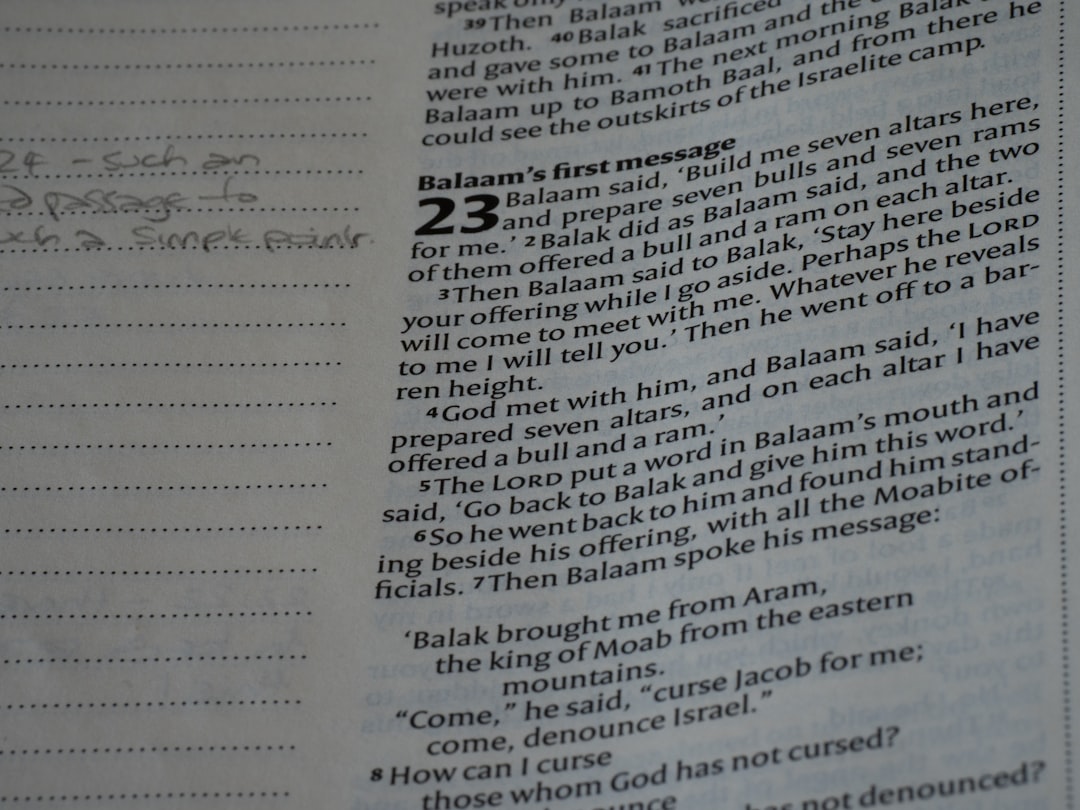 24 - such an
passage to
a simple point.
speak only
39 Then Balaam
Huzoth. 40 Balak sacrificed
and gave some to Balaam and the
were with him. 41 The next morning Balak
Balaam up to Bamoth Baal, and from there he
could see the outskirts of the Israelite camp.
Balaam's first message
23 Balaam said, 'Build me seven altars here,
and prepare seven bulls and seven rams
for me.' 2 Balak did as Balaam said, and the two
of them offered a bull and a ram on each altar.
3 Then Balaam said to Balak, 'Stay here beside
your offering while I go aside. Perhaps the LORD
will come to meet with me. Whatever he reveals
to me I will tell you.' Then he went off to a bar-
ren height.
4 God met with him, and Balaam said, 'I have
prepared seven altars, and on each altar I have
offered a bull and a ram.'
5 The LORD put a word in Balaam's mouth and
said, 'Go back to Balak and give him this word.'
6 So he went back to him and found him stand-
ing beside his offering, with all the Moabite of-
ficials. 7 Then Balaam spoke his message:
'Balak brought me from Aram,
the king of Moab from the eastern
mountains.
"Come," he said, "curse Jacob for me;
come, denounce Israel."
8 How can I curse
those whom God has not cursed?
has not denounced?